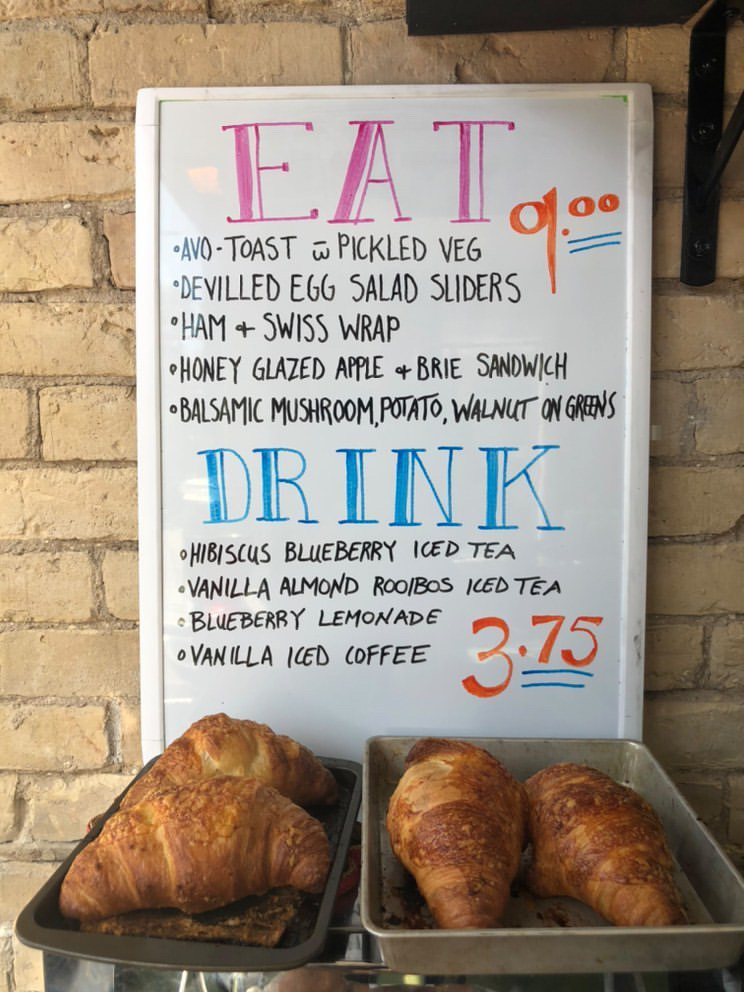 EAT
9.00
•AVO-TOAST w̄ PICKLED VEG
•DEVILLED EGG SALAD SLIDERS
•HAM + SWISS WRAP
•HONEY GLAZED APPLE + BRIE SANDWICH
•BALSAMIC MUSHROOM, POTATO, WALNUT ON GREENS
DRINK
•HIBISCUS BLUEBERRY ICED TEA
•VANILLA ALMOND ROOIBOS ICED TEA
•BLUEBERRY LEMONADE
•VANILLA ICED COFFEE
3.75